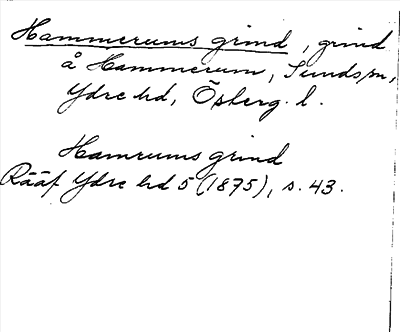 Hammerums grind, grind
å Hammerum, Sunds sn,
Ydre hd, Ösberg. l.
Hamrums grind
Rääf Ydre hd 5 (1875), s. 43.